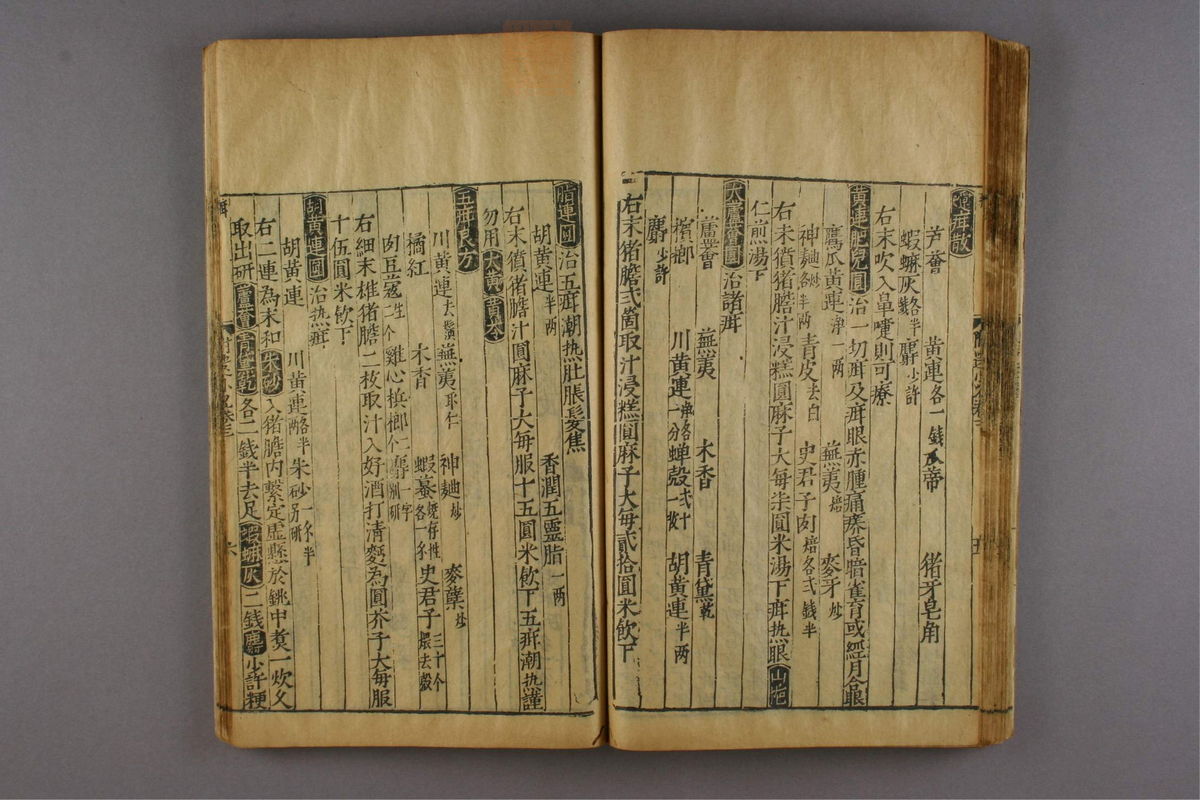 疳散
芦薈 黄連各一錢 瓜蒂 猪牙皂角
蝦蟆灰各半錢 麝少許
右末吹入鼻嚏則可療
黄連肥兒圓 治一切疳及疳眼赤腫痛痒昏暗雀盲或經月合眼
鷹瓜黄連净一两 蕪荑焙 麥牙炒
神麯各半两 青皮去白 史君子肉焙各弍錢半
右末獖猪膽汁浸糕圓麻子大每柒圓米湯下疳热眼山梔
仁煎湯下
大蘆薈圓 治諸疳
蘆薈 蕪荑 木香 青黛乾
檳榔 川黄連各一分 蝉殻弍十一枚 胡黄連半两
麝少許
右末猪膽弍箇取汁浸糕圓麻子大每貳拾圓米飲下
脂連圓 治五疳潮热肚脹髮焦
胡黄連半两 香潤五靈脂一两
右末獖猪膽汁圓麻子大每服十五圓米飲下五疳潮热謹
勿用大黄黄芩
五疳良方
川黄連去鬚 蕪荑取仁 神麯炒 麥蘖炒
橘紅 木香 蝦蟇燒存性各一分 史君子三十个煨去殻
肉豆蔻生二个 雞心梹榔二个 麝一字別研
右細末雄猪膽二枚取汁入好酒打清麪為圓芥子大每服
十伍圓米飲下
胡黄連圓 治热疳
胡黄連 川黄連各半两 朱砂一分半別研
右二連為末和朱砂入猪膽内繫定虚懸於銚中煮一炊久
取出研蘆薈青黛乾各二錢半去足蝦蟆灰二錢麝少許粳